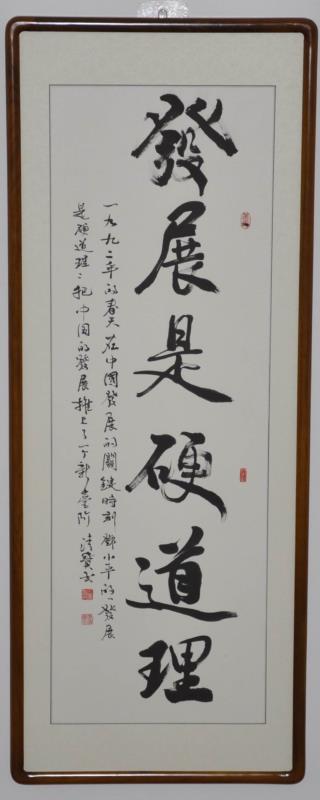 發展是硬道理
一九九二年的春天在中國發展的關鍵時刻鄧小平的發展
是硬道理把中國的發展推上了一个新臺階